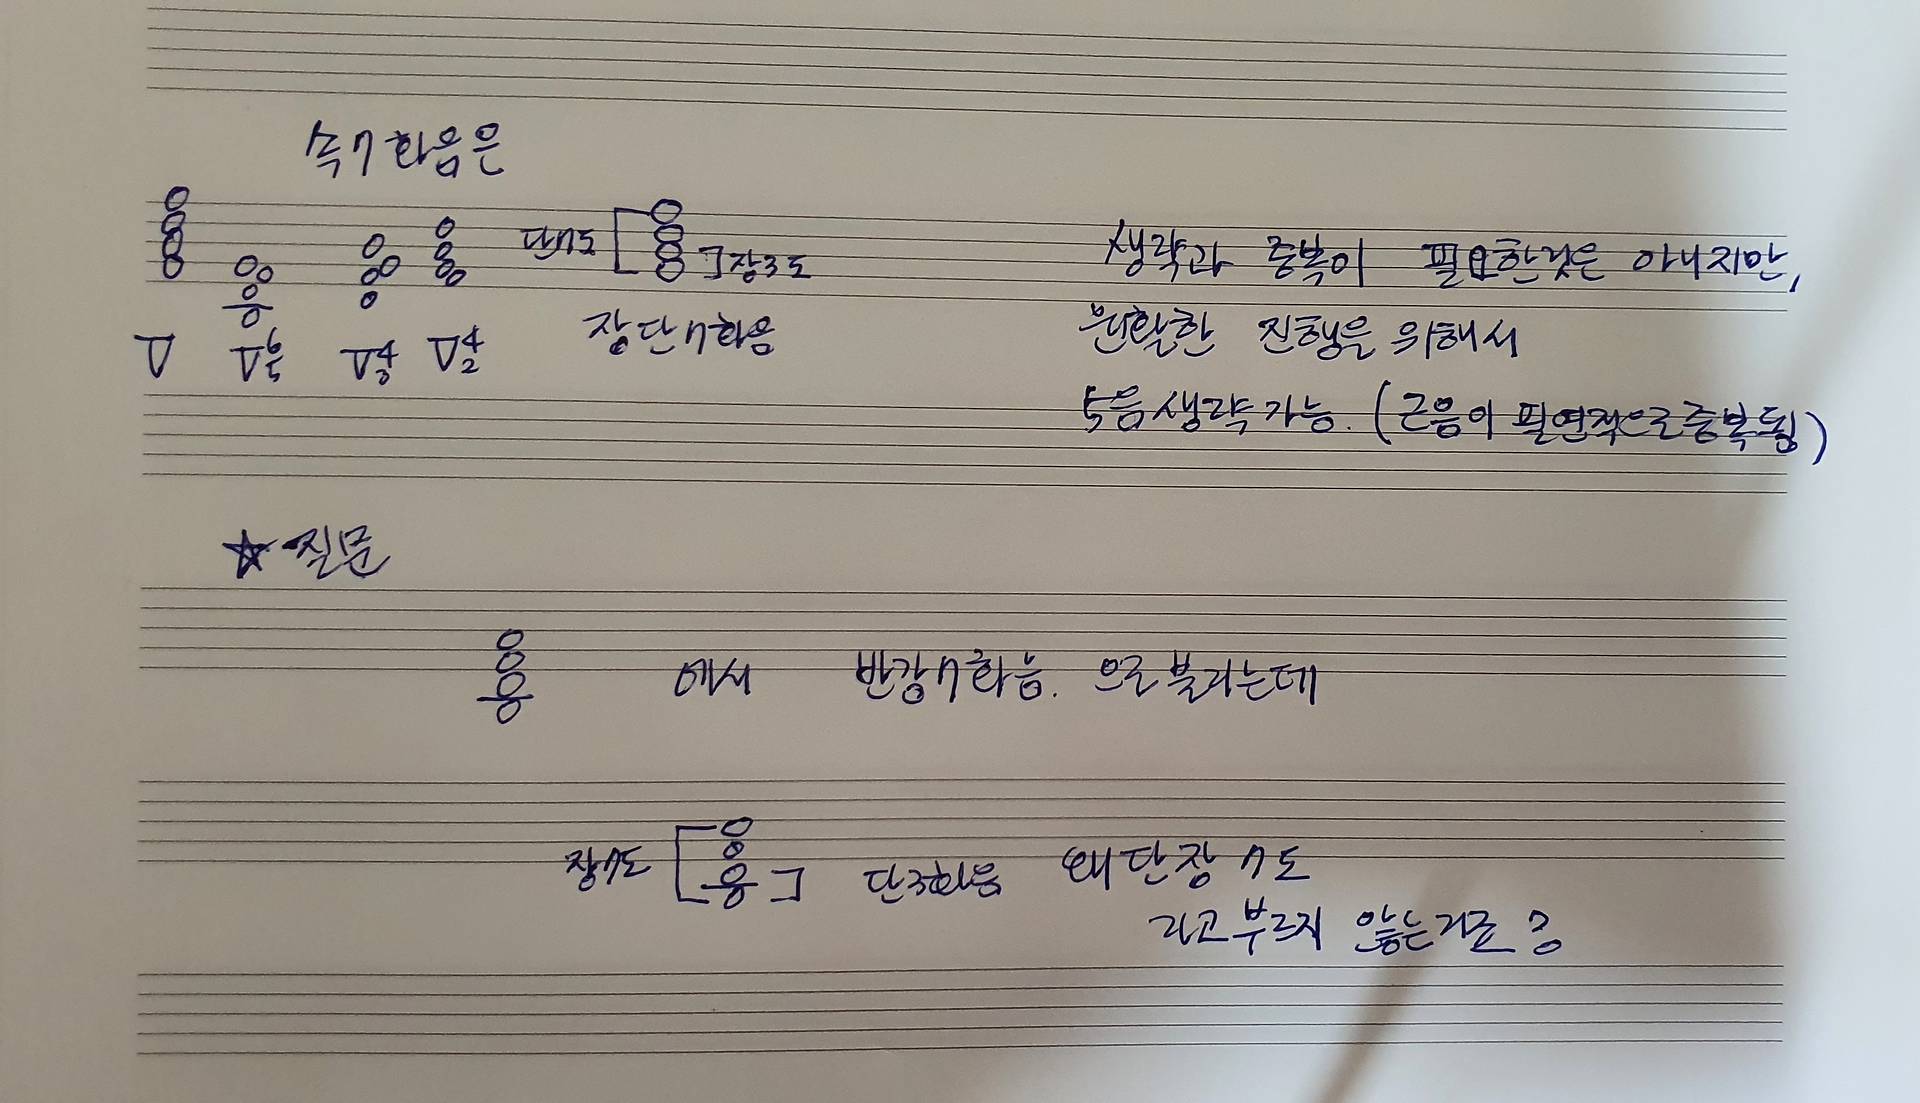 속7화음은
단7도 장3도
V V6/5 V4/3 V4/2 장단7화음
생략과 중복이 필요한것은 아니지만,
원활한 진행을 위해서
5음생략가능. (근음이 필연적으로중복됨)
☆ 질문
에서 반감7화음. 으로불리는데
장7도 단3화음 왜 단장 7도
라고부르지 않는거죠?